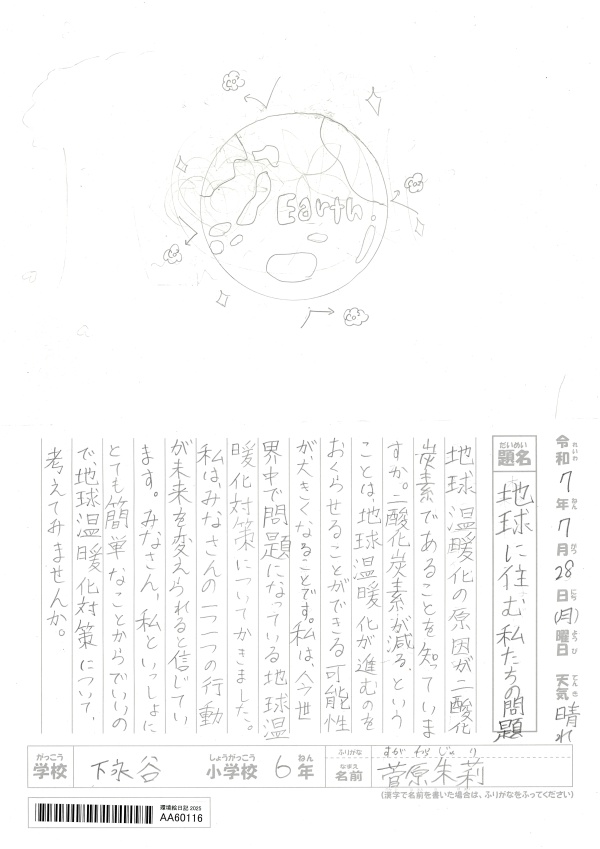 Earth
令和7年7月28日(月)曜日 天気 晴れ
題名 地球に住む私たちの問題
地球温暖化の原因が二酸化
炭素であることを知っていま
すか。二酸化炭素が減る、という
ことは、地球温暖化が進むのを
おくらせることができる可能性
が、大きくなることです。私は、今世
界中で問題になっている地球温
暖化対策についてかきました。
私は、みなさんの一つ一つの行動
が未来を変えられると信じてい
ます。みなさん、私といっしょに
とても簡単なことからでいいの
で、地球温暖化対策について、
考えてみませんか。
学校 下永谷 小学校 6年
ふりがな すがわらじゅり
名前 菅原朱莉
(漢字で名前を書いた場合は、ふりがなをふってください)
環境絵日記 2025
AA60116